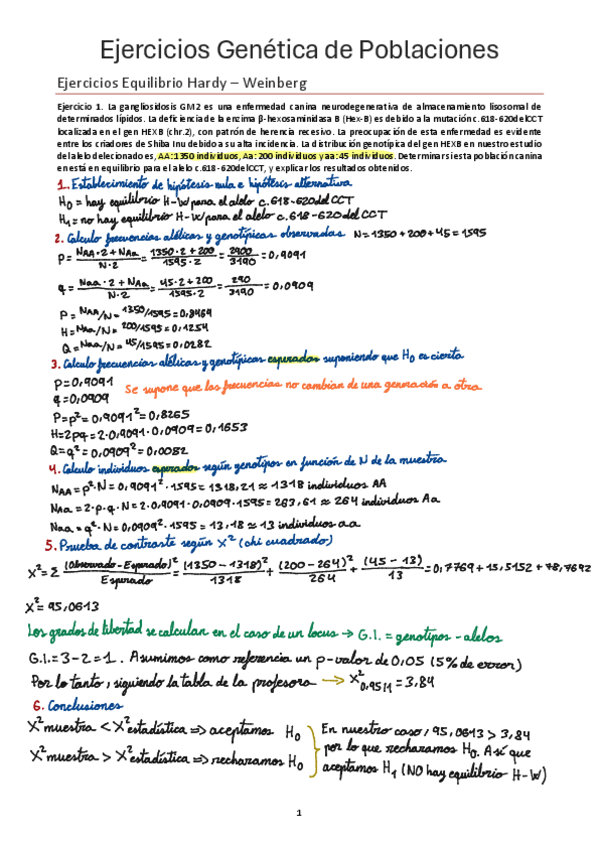 Ejercicios Genética de Poblaciones
Ejercicios Equilibrio Hardy – Weinberg
Ejercicio 1. La gangliosidosis GM2 es una enfermedad canina neurodegenerativa de almacenamiento lisosomal de
determinados lípidos. La deficiencia de la enzima β-hexosaminidasa B (Hex-B) es debido a la mutación c.618-620delCCT
localizada en el gen HEXB (chr.2), con patrón de herencia recesivo. La preocupación de esta enfermedad es evidente
entre los criadores de Shiba Inu debido a su alta incidencia. La distribución genotípica del gen HEXB en nuestro estudio
del alelo delecionado es, AA:1350 individuos, Aa: 200 individuos y aa: 45 individuos. Determinar si esta población canina
en está en equilibrio para el alelo c.618-620delCCT, y explicar los resultados obtenidos.
1. Establecimiento de hipótesis nula e hipótesis alternativa
H₀ = hay equilibrio H-W para el alelo c.618-620delCCT
H₁ = no hay equilibrio H-W para el alelo c.618-620delCCT
2. Calculo frecuencias alélicas y genotípicas observadas N = 1350 + 200 + 45 = 1595
P = (NAA·2 + NAa)/(N·2) = (1350·2 + 200)/(1595·2) = 2900/3190 = 0,9091
q = (Naa·2 + NAa)/(N·2) = (45·2 + 200)/(1595·2) = 290/3190 = 0,0909
P = NAA/N = 1350/1595 = 0,8469
H = NAa/N = 200/1595 = 0,1254
Q = Naa/N = 45/1595 = 0,0282
3. Calculo frecuencias alélicas y genotípicas esperadas suponiendo que H₀ es cierta
P = 0,9091
q = 0,0909
Se supone que las frecuencias no cambian de una generación a otra
P = p² = 0,9091² = 0,8265
H = 2pq = 2·0,9091·0,0909 = 0,1653
Q = q² = 0,0909² = 0,0082
4. Calculo individuos esperados según genotipos en función de N de la muestra
NAA = p²·N = 0,9091²·1595 = 1318,21 ≈ 1318 individuos AA
NAa = 2·p·q·N = 2·0,9091·0,0909·1595 = 263,61 ≈ 264 individuos Aa
Naa = q²·N = 0,0909²·1595 = 13,18 ≈ 13 individuos aa
5. Prueba de contraste según X² (chi cuadrado)
X² = Σ (Observado - Esperado)²/Esperado = (1350 - 1318)²/1318 + (200 - 264)²/264 + (45 - 13)²/13 = 0,7769 + 15,5152 + 78,7692
X² = 95,0613
Los grados de libertad se calculan en el caso de un locus → G.l. = genotipos - alelos
G.l. = 3 - 2 = 1. Asumimos como referencia un p-valor de 0,05 (5% de error)
Por lo tanto, siguiendo la tabla de la profesora → X²0,95;1 = 3,84
6. Conclusiones
X² muestra < X² estadística ⇒ aceptamos H₀
X² muestra > X² estadística ⇒ rechazamos H₀
En nuestro caso, 95,0613 > 3,84
por lo que rechazamos H₀. Así que
aceptamos H₁ (NO hay equilibrio H-W)
1